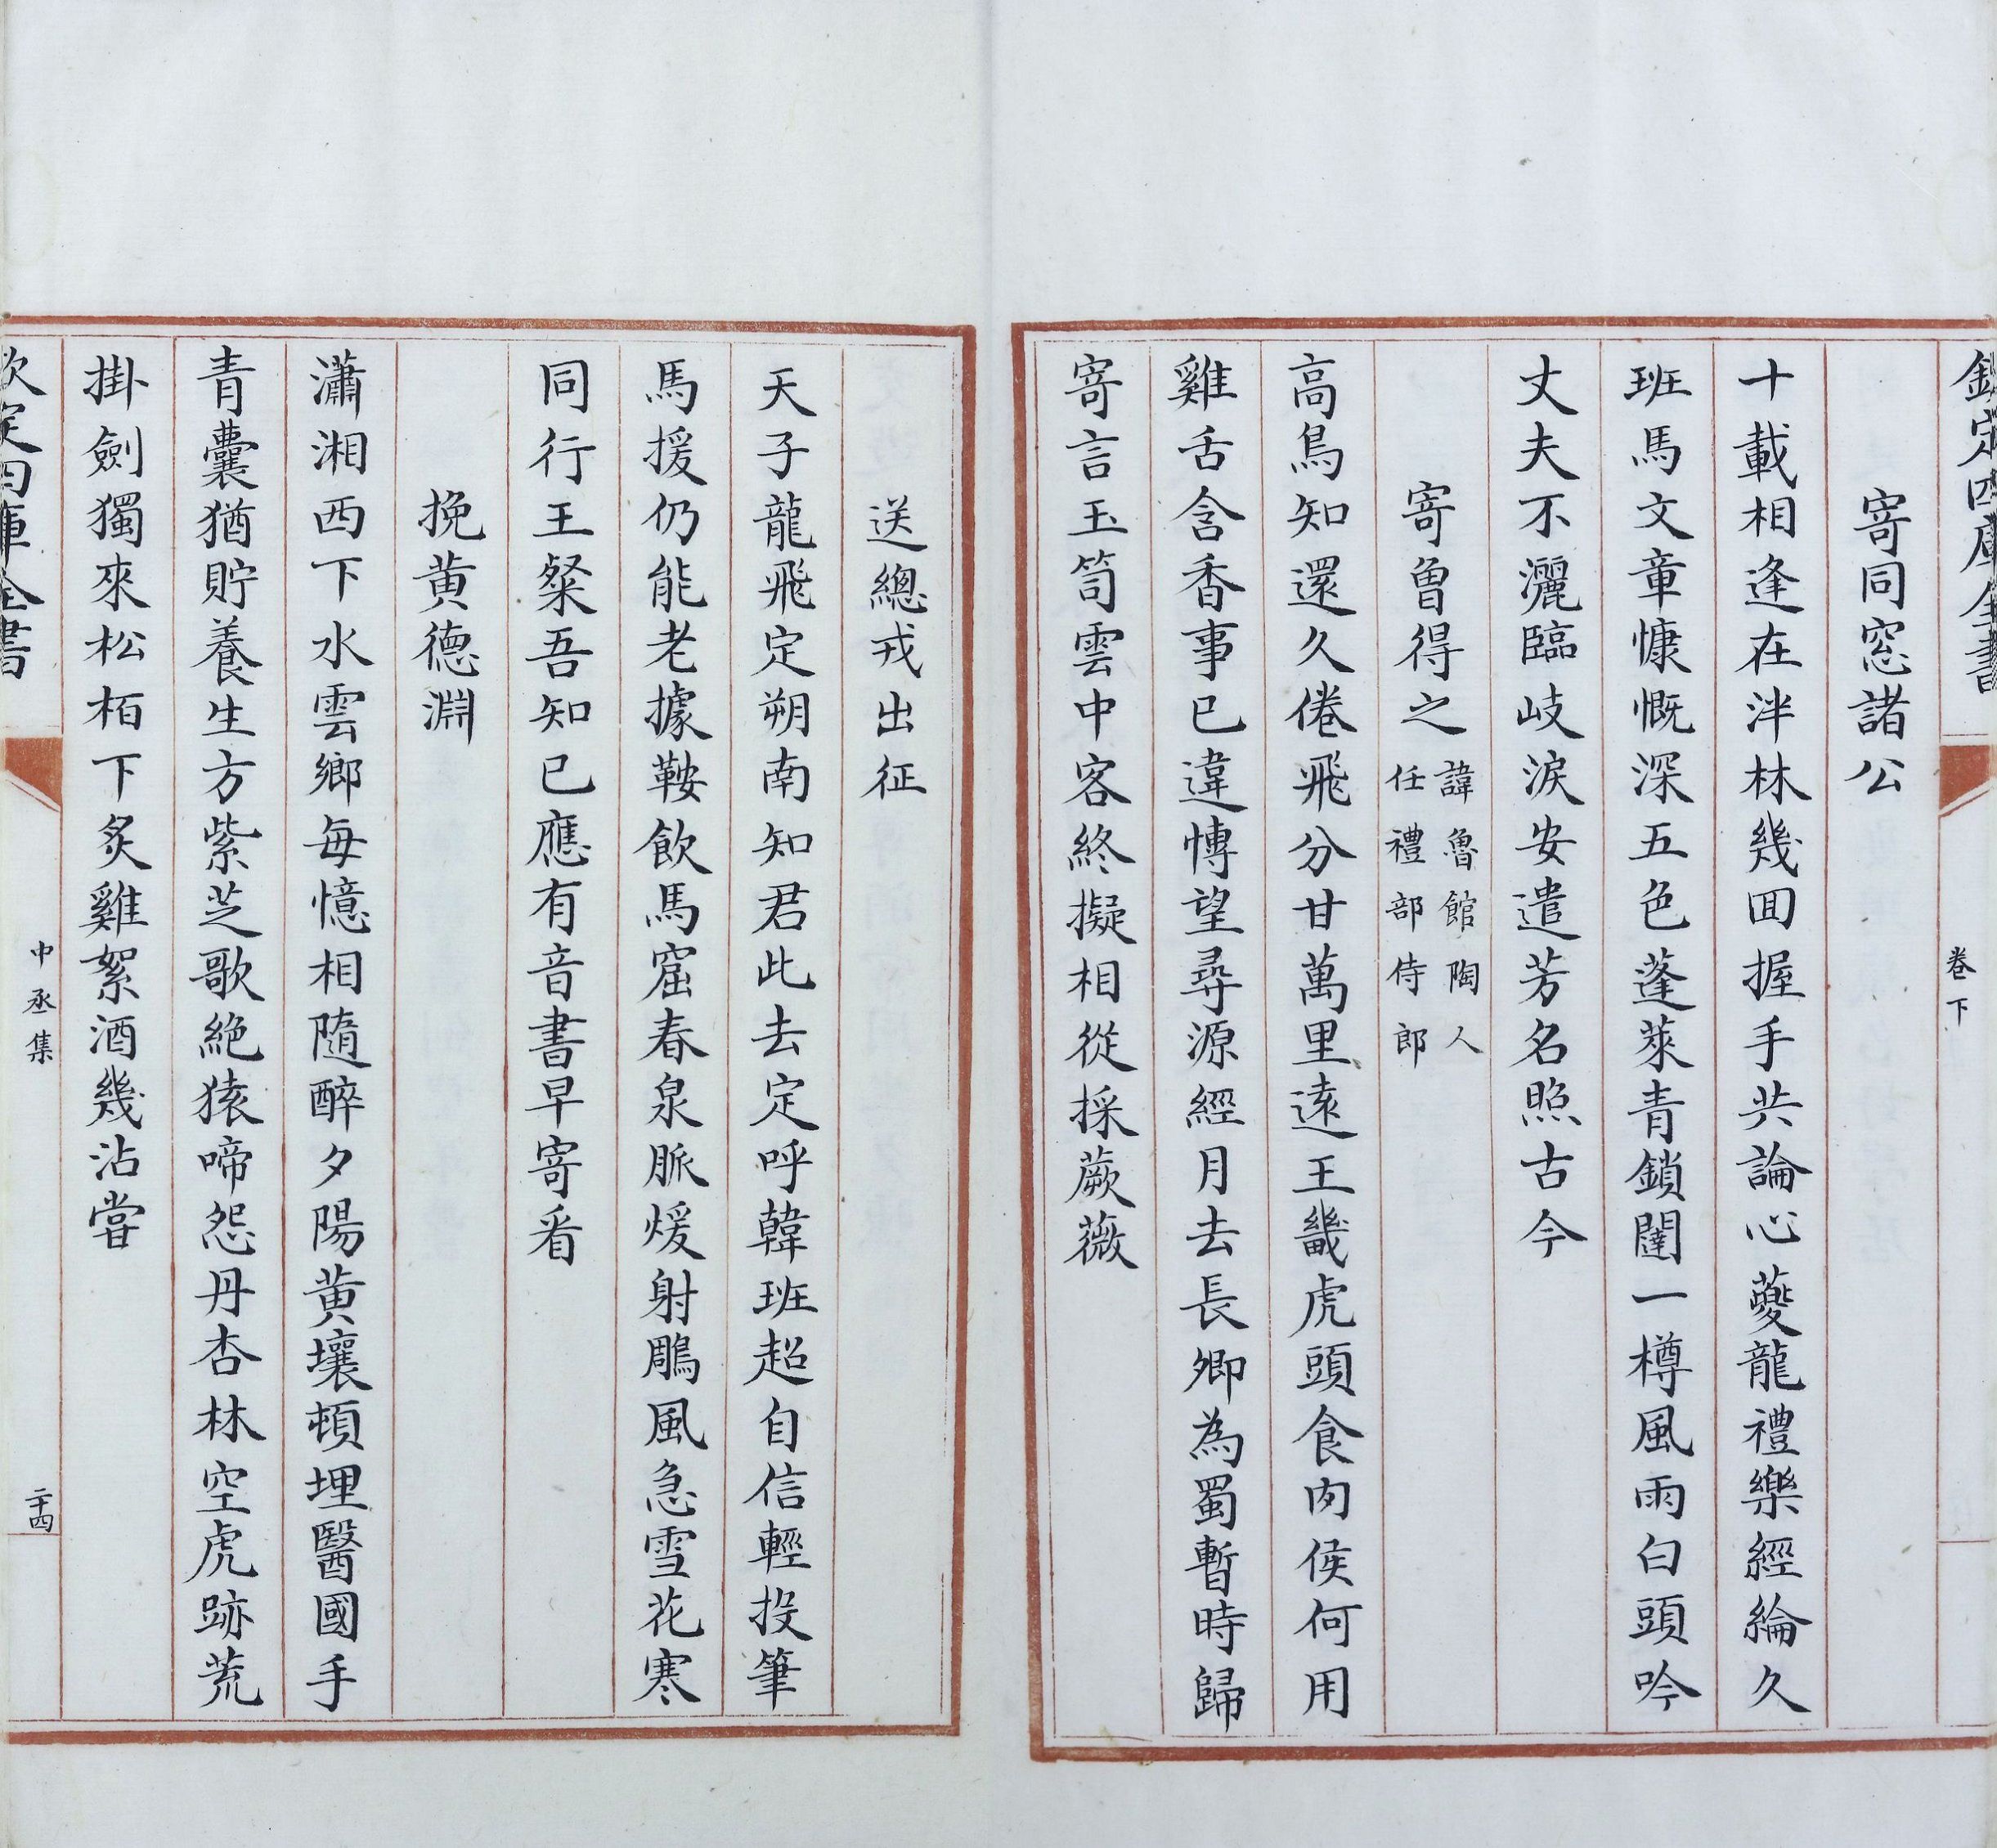 欽定四庫全書
卷下
寄同窓諸公
十載相逢在泮林幾囬握手共論心夔龍禮樂經綸久
班馬文章慷慨深五色蓬萊青鎖闥一樽風雨白頭吟
丈夫不灑臨岐淚安遣芳名照古今
寄曾得之諱魯館陶人任禮部侍郎
高鳥知還久倦飛分甘萬里遠王畿虎頭食肉侯何用
雞舌含香事已違博望尋源經月去長卿為蜀暫時歸
寄言玉笥雲中客終擬相從採蕨薇
送總戎出征
天子龍飛定朔南知君此去定呼韓班超自信輕投筆
馬援仍能老據鞍飲馬窟春泉脈煖射鵰風急雪花寒
同行王粲吾知已應有音書早寄看
挽黄德淵
瀟湘西下水雲鄉每憶相隨醉夕陽黄壤頓埋醫國手
青囊猶貯養生方紫芝歌絶猿啼怨丹杏林空虎跡荒
掛劍獨來松栢下炙雞絮酒幾沾嘗
欽定四庫全書
中丞集
二十四